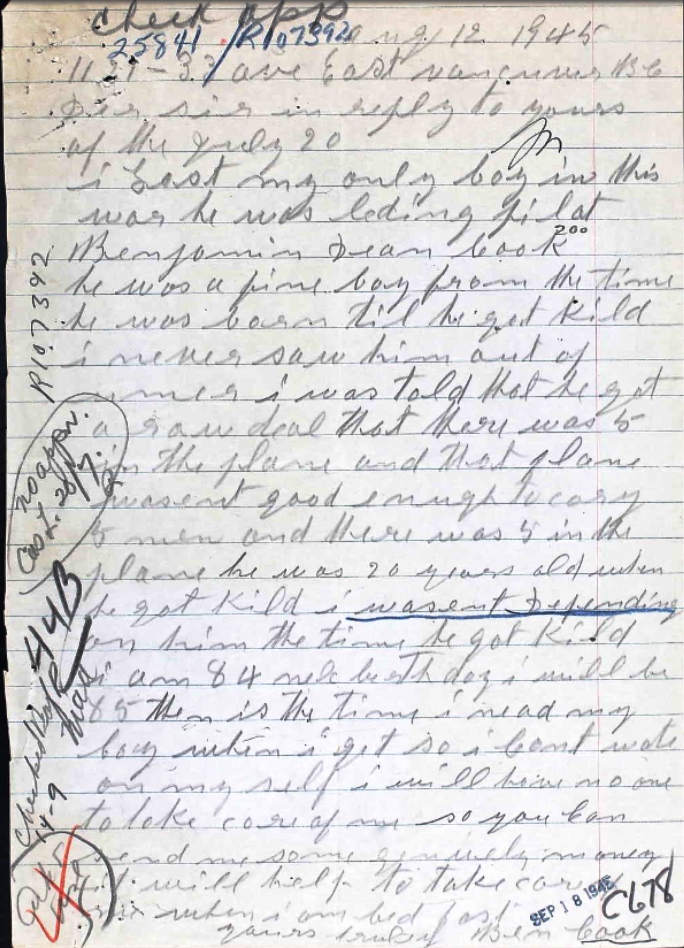 check app
25841 / R107392 aug 12 1945
1131-33 ave East vancuver BC
Der sir in reply to yours
of the july 20
i Lost my only boy in this
war he was leding pilat
Benjamin Dean Cook
200
he was a fine boy from the time
he was born til he got Kild
i never saw him out of
i was told that he got
a raw deal that there was 5
in the plane and that plane
wasent good enught to cary
5 men and there was 5 in the
plane he was 20 years old when
he got Kild i wasent Depending
on him the time he got Kild
i am 84 nex berthday i will be
85 then is the time i nead my
boy when i get so i Cant wate
on my self i will have no one
to take care of me so you Can
send me some money
it will help to take care of
me when i am bed fast
yours truley Ben Cook
R107392
no appn.
44B
Checked
14-9
SEP 18 1945
C678